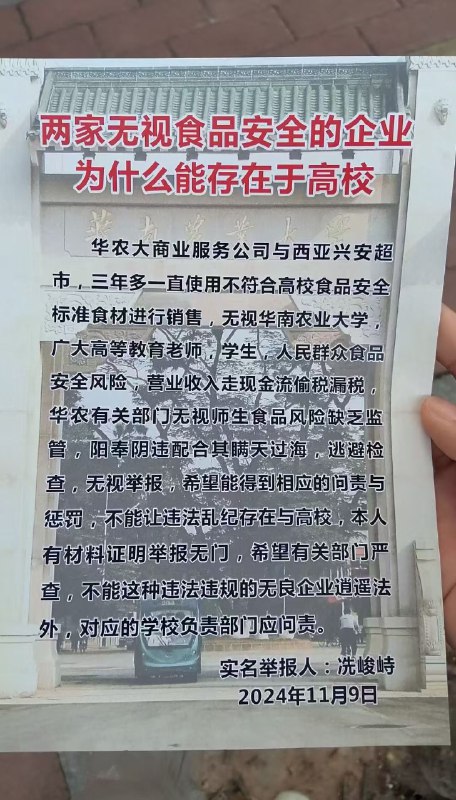 两家无视食品安全的企业
为什么能存在于高校
华南农业大学
华农大商业服务公司与西亚兴安超
市，三年多一直使用不符合高校食品安全
标准食材进行销售，无视华南农业大学，
广大高等教育老师，学生，人民群众食品
安全风险，营业收入走现金流偷税漏税，
华农有关部门无视师生食品风险缺乏监
管，阳奉阴违配合其瞒天过海，逃避检
查，无视举报，希望能得到相应的问责与
惩罚，不能让违法乱纪存在与高校，本人
有材料证明举报无门，希望有关部门严
查，不能这种违法违规的无良企业逍遥法
外，对应的学校负责部门应问责。
实名举报人：冼峻峙
2024年11月9日